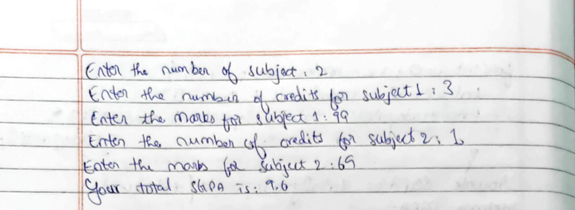 Enter the number of subject : 2
Enter the number of credits for subject 1 : 3
Enter the marks for subject 1 : 99
Enter the number of credits for subject 2 : 1
Enter the marks for subject 2 : 69
Your total SGPA is : 9.0